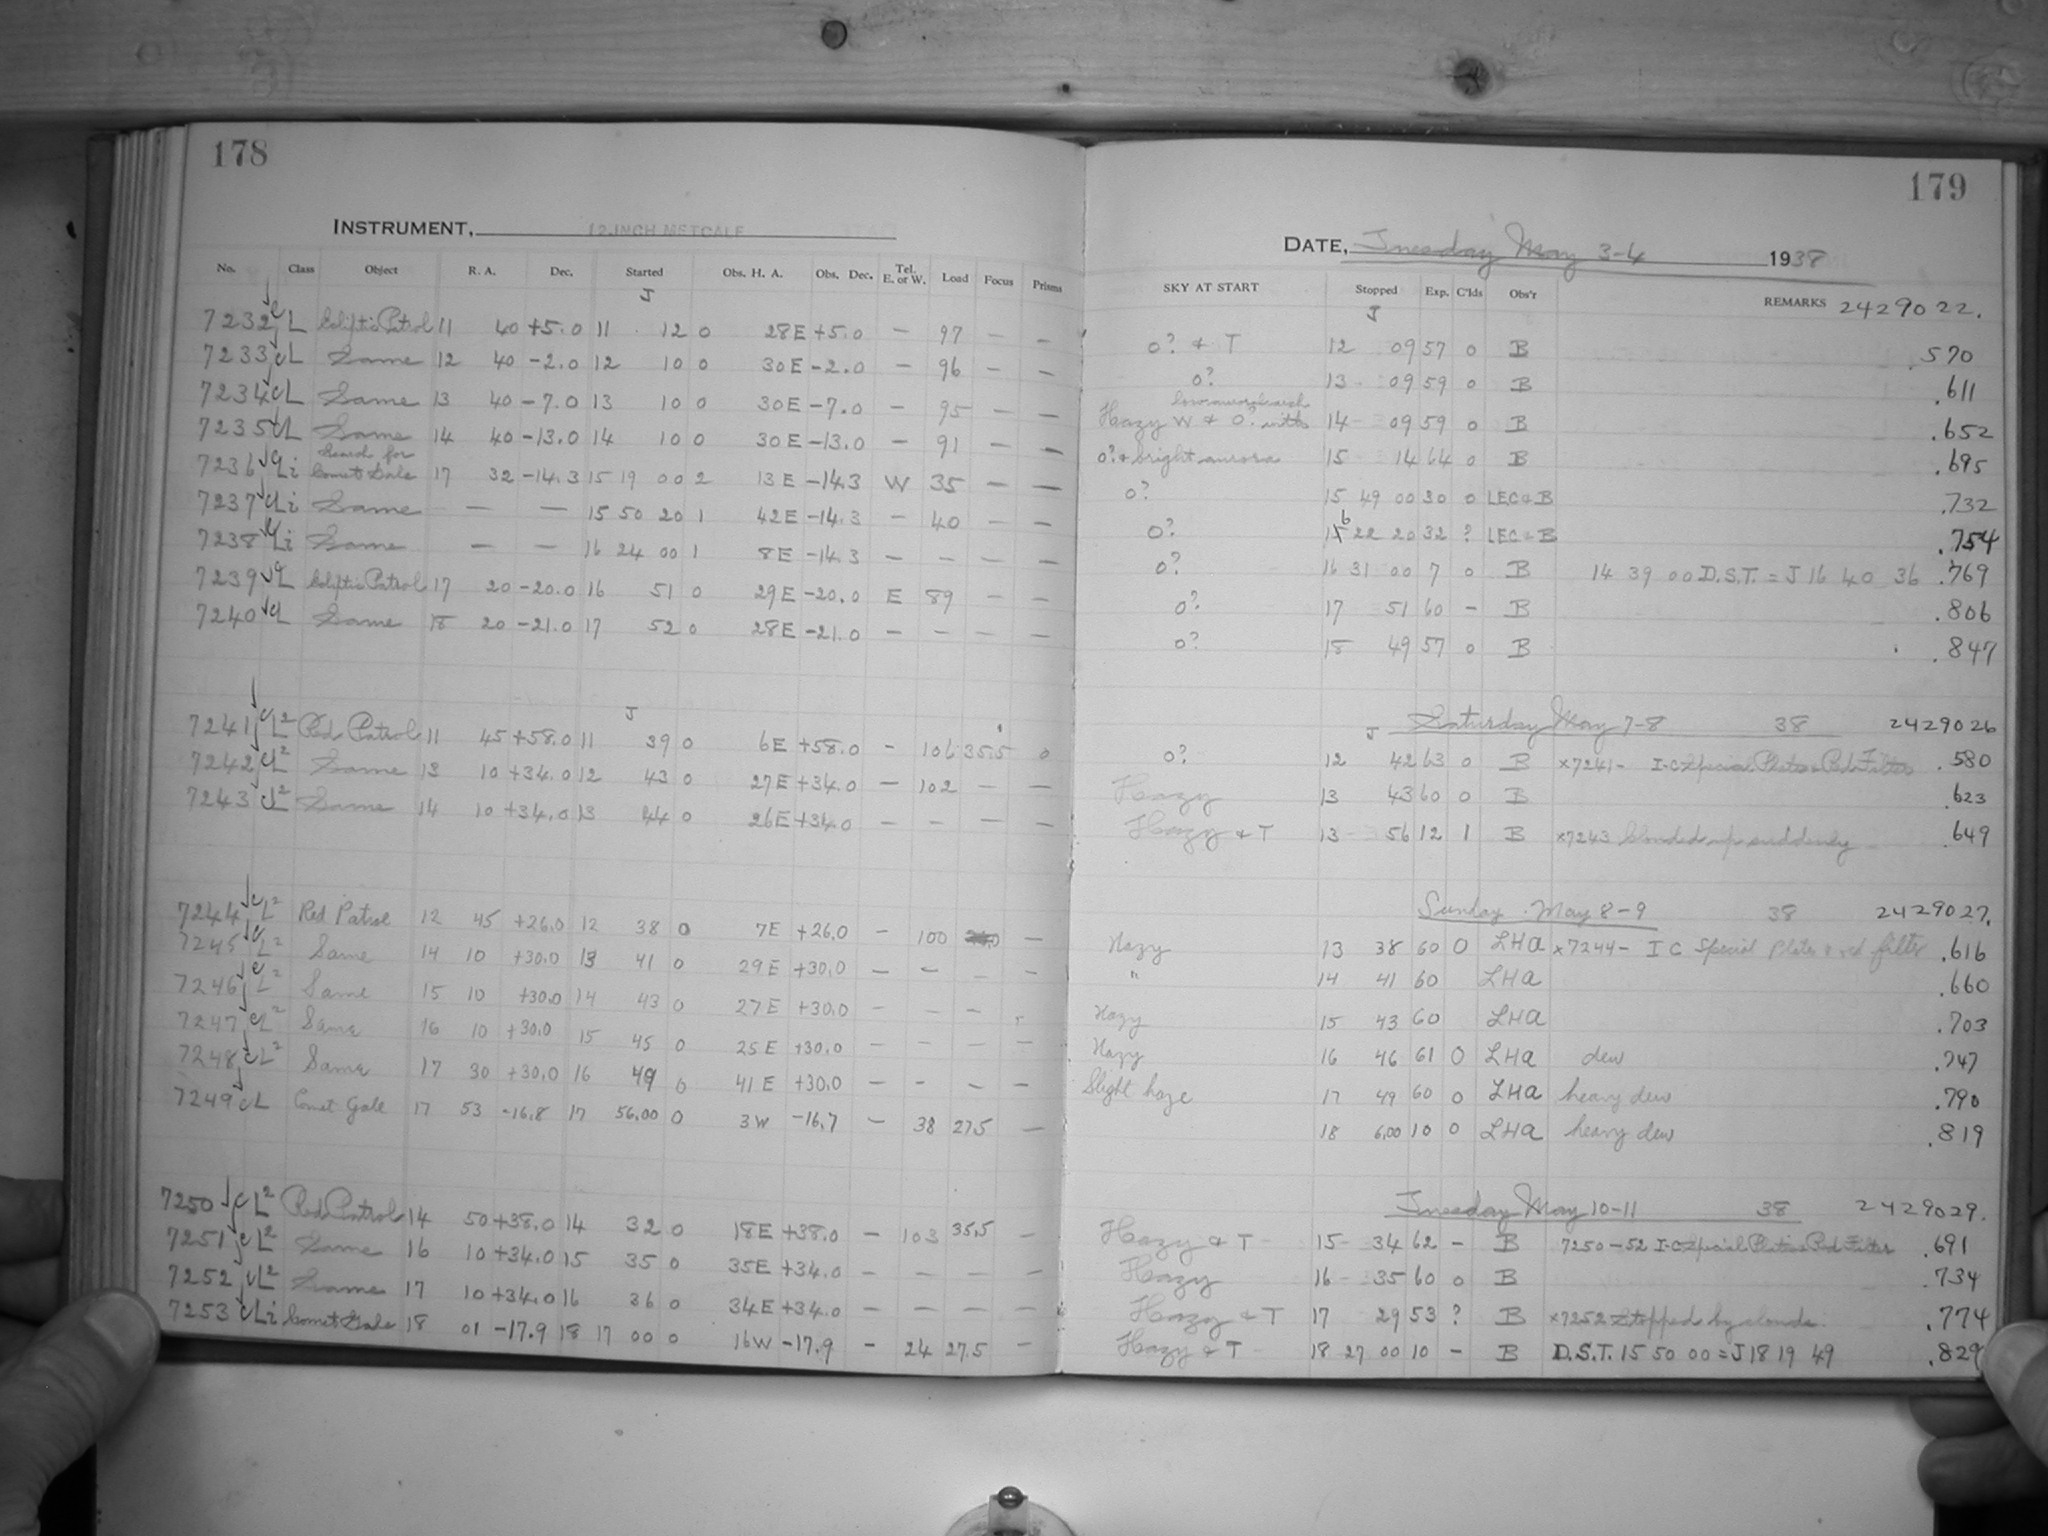 178
INSTRUMENT, 12-INCH METCALF
No. Class Object R. A. Dec. Started Obs. H. A. Obs. Dec. Tel. E. or W. Load Focus Prisms
J
7232 cL Ecliptic Patrol 11 40 +5.0 11 12 0 28E +5.0 — 97 — —
7233 cL Same 12 40 -2.0 12 10 0 30E -2.0 — 96 — —
7234 cL Same 13 40 -7.0 13 10 0 30E -7.0 — 95 — —
7235 cL Same 14 40 -13.0 14 10 0 30E -13.0 — 91 — —
7236 cLi Search for Comet Gale 17 32 -14.3 15 19 00 2 13E -14.3 W 35 — —
7237 cLi Same — — 15 50 20 1 42E -14.3 — 40 — —
7238 cLi Same — — 16 24 00 1 8E -14.3 — — — —
7239 cL Ecliptic Patrol 17 20 -20.0 16 51 0 29E -20.0 E 89 — —
7240 cL Same 18 20 -21.0 17 52 0 28E -21.0 — — — —
J
7241 cL² Red Patrol 11 45 +58.0 11 39 0 6E +58.0 — 106 35.5 0
7242 cL² Same 13 10 +34.0 12 43 0 27E +34.0 — 102 — —
7243 cL² Same 14 10 +34.0 13 44 0 26E +34.0 — — — —
7244 cL² Red Patrol 12 45 +26.0 12 38 0 7E +26.0 — 100 —
7245 cL² Same 14 10 +30.0 13 41 0 29E +30.0 — — — —
7246 cL² Same 15 10 +30.0 14 43 0 27E +30.0 — — —
7247 cL² Same 16 10 +30.0 15 45 0 25E +30.0 — — — —
7248 cL² Same 17 30 +30.0 16 49 0 41E +30.0 — — — —
7249 cL Comet Gale 17 53 -16.8 17 56.00 0 3W -16.7 — 38 27.5 —
7250 cL² Red Patrol 14 50 +38.0 14 32 0 18E +38.0 — 103 35.5 —
7251 cL² Same 16 10 +34.0 15 35 0 35E +34.0 — — — —
7252 cL² Same 17 10 +34.0 16 36 0 34E +34.0 — — — —
7253 cLi Comet Gale 18 01 -17.9 18 17 00 0 16W -17.9 — 24 27.5 —
179
DATE, Tuesday May 3-4 1938
SKY AT START Stopped Exp. C'lds Obs'r REMARKS 2429022.
J
0? & T 12 09 57 0 B .570
0? 13 09 59 0 B .611
Hazy W & 0? with 14 09 59 0 B .652
0? & bright aurora 15 14 64 0 B .695
0? 15 49 00 30 0 LEC & B .732
0? 16 22 20 32 ? LEC & B .754
0? 16 31 00 7 0 B 14 39 00 D.S.T. = J 16 40 36 .769
0? 17 51 60 — B .806
0? 18 49 57 0 B .847
J Saturday May 7-8 38 2429026
0? 12 42 63 0 B ×7241- I-C Special Plates & Red Filter .580
Hazy 13 43 60 0 B .623
Hazy & T 13 56 12 1 B ×7243 Clouded up suddenly .649
Sunday May 8-9 38 2429027.
Hazy 13 38 60 0 LHA ×7244- I C Special Plates & red filter .616
" 14 41 60 LHA .660
Hazy 15 43 60 LHA .703
Hazy 16 46 61 0 LHA dew .747
Slight haze 17 49 60 0 LHA heavy dew .790
18 6.00 10 0 LHA heavy dew .819
Tuesday May 10-11 38 2429029.
Hazy & T 15 34 62 — B 7250-52 I-C Special Plates & Red Filter .691
Hazy 16 35 60 0 B .734
Hazy & T 17 29 53 ? B ×7252 Stopped by clouds. .774
Hazy & T 18 27 00 10 — B D.S.T. 15 50 00 = J 18 19 49 .829